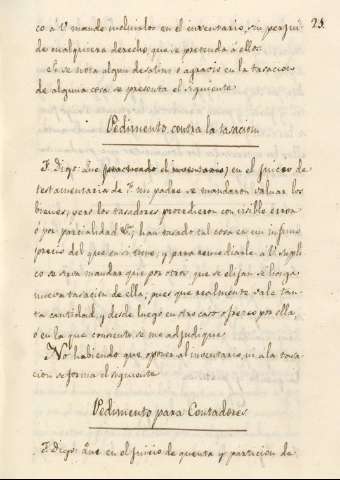 23.
co á V. mande incluirlos en el inventario, sin perjui-
de cualquiera derecho que se pretenda á ellos.
Si se nota algun desatino ó agravio en la tasacion
de alguna cosa se presenta el siguiente
Pedimento contra la tasacion
F. Digo: Que practicado el inventario, en el juicio de
testamentaria de F. mi padre se mandaron valuar los
bienes, pero los tasadores procedieron con visible error
ó por parcialidad &c, han tasado tal cosa en un infimo
precio del que en sí tiene, y para remediarle á V. supli
co se sirva mandar que por otros que se elijan se haga
nueva tasacion de ella, pues que realmente vale tan-
ta cantidad, y desde luego en otro caso ofrezco por ella,
ó en la que consiento se me adjudique.
No habiendo que oponer al inventario, ni á la tasa
cion se forma el siguiente
Pedimento para Contadores
F. Digo: Que en el juicio de cuenta y particion de